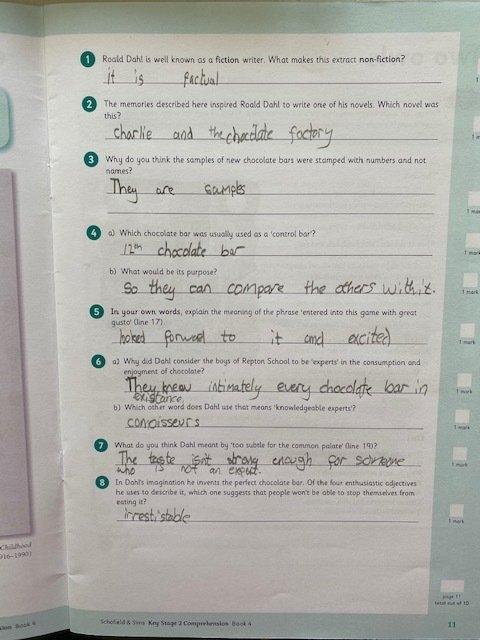 1 Roald Dahl is well known as a fiction writer. What makes this extract non-fiction?
it is factual
2 The memories described here inspired Roald Dahl to write one of his novels. Which novel was
this?
charlie and the chocolate factory
3 Why do you think the samples of new chocolate bars were stamped with numbers and not
names?
They are samples
1 mark
4 a) Which chocolate bar was usually used as a 'control bar'?
12th chocolate bar
1 mark
b) What would be its purpose?
So they can compare the others with it.
1 mark
5 In your own words, explain the meaning of the phrase 'entered into this game with great
gusto' (line 17).
looked forward to it and excited
1 mark
6 a) Why did Dahl consider the boys of Repton School to be 'experts' in the consumption and
enjoyment of chocolate?
They knew intimately every chocolate bar in
existance
1 mark
b) Which other word does Dahl use that means 'knowledgeable experts'?
connoisseurs
1 mark
7 What do you think Dahl meant by 'too subtle for the common palate' (line 19)?
The taste isnt strong enough for someone
who is not an expert.
1 mark
8 In Dahl's imagination he invents the perfect chocolate bar. Of the four enthusiastic adjectives
he uses to describe it, which one suggests that people won't be able to stop themselves from
eating it?
irresti stable
1 mark
Childhood
916–1990)
page 11
total out of 10
sion Book 4
Schofield & Sims Key Stage 2 Comprehension Book 4
11